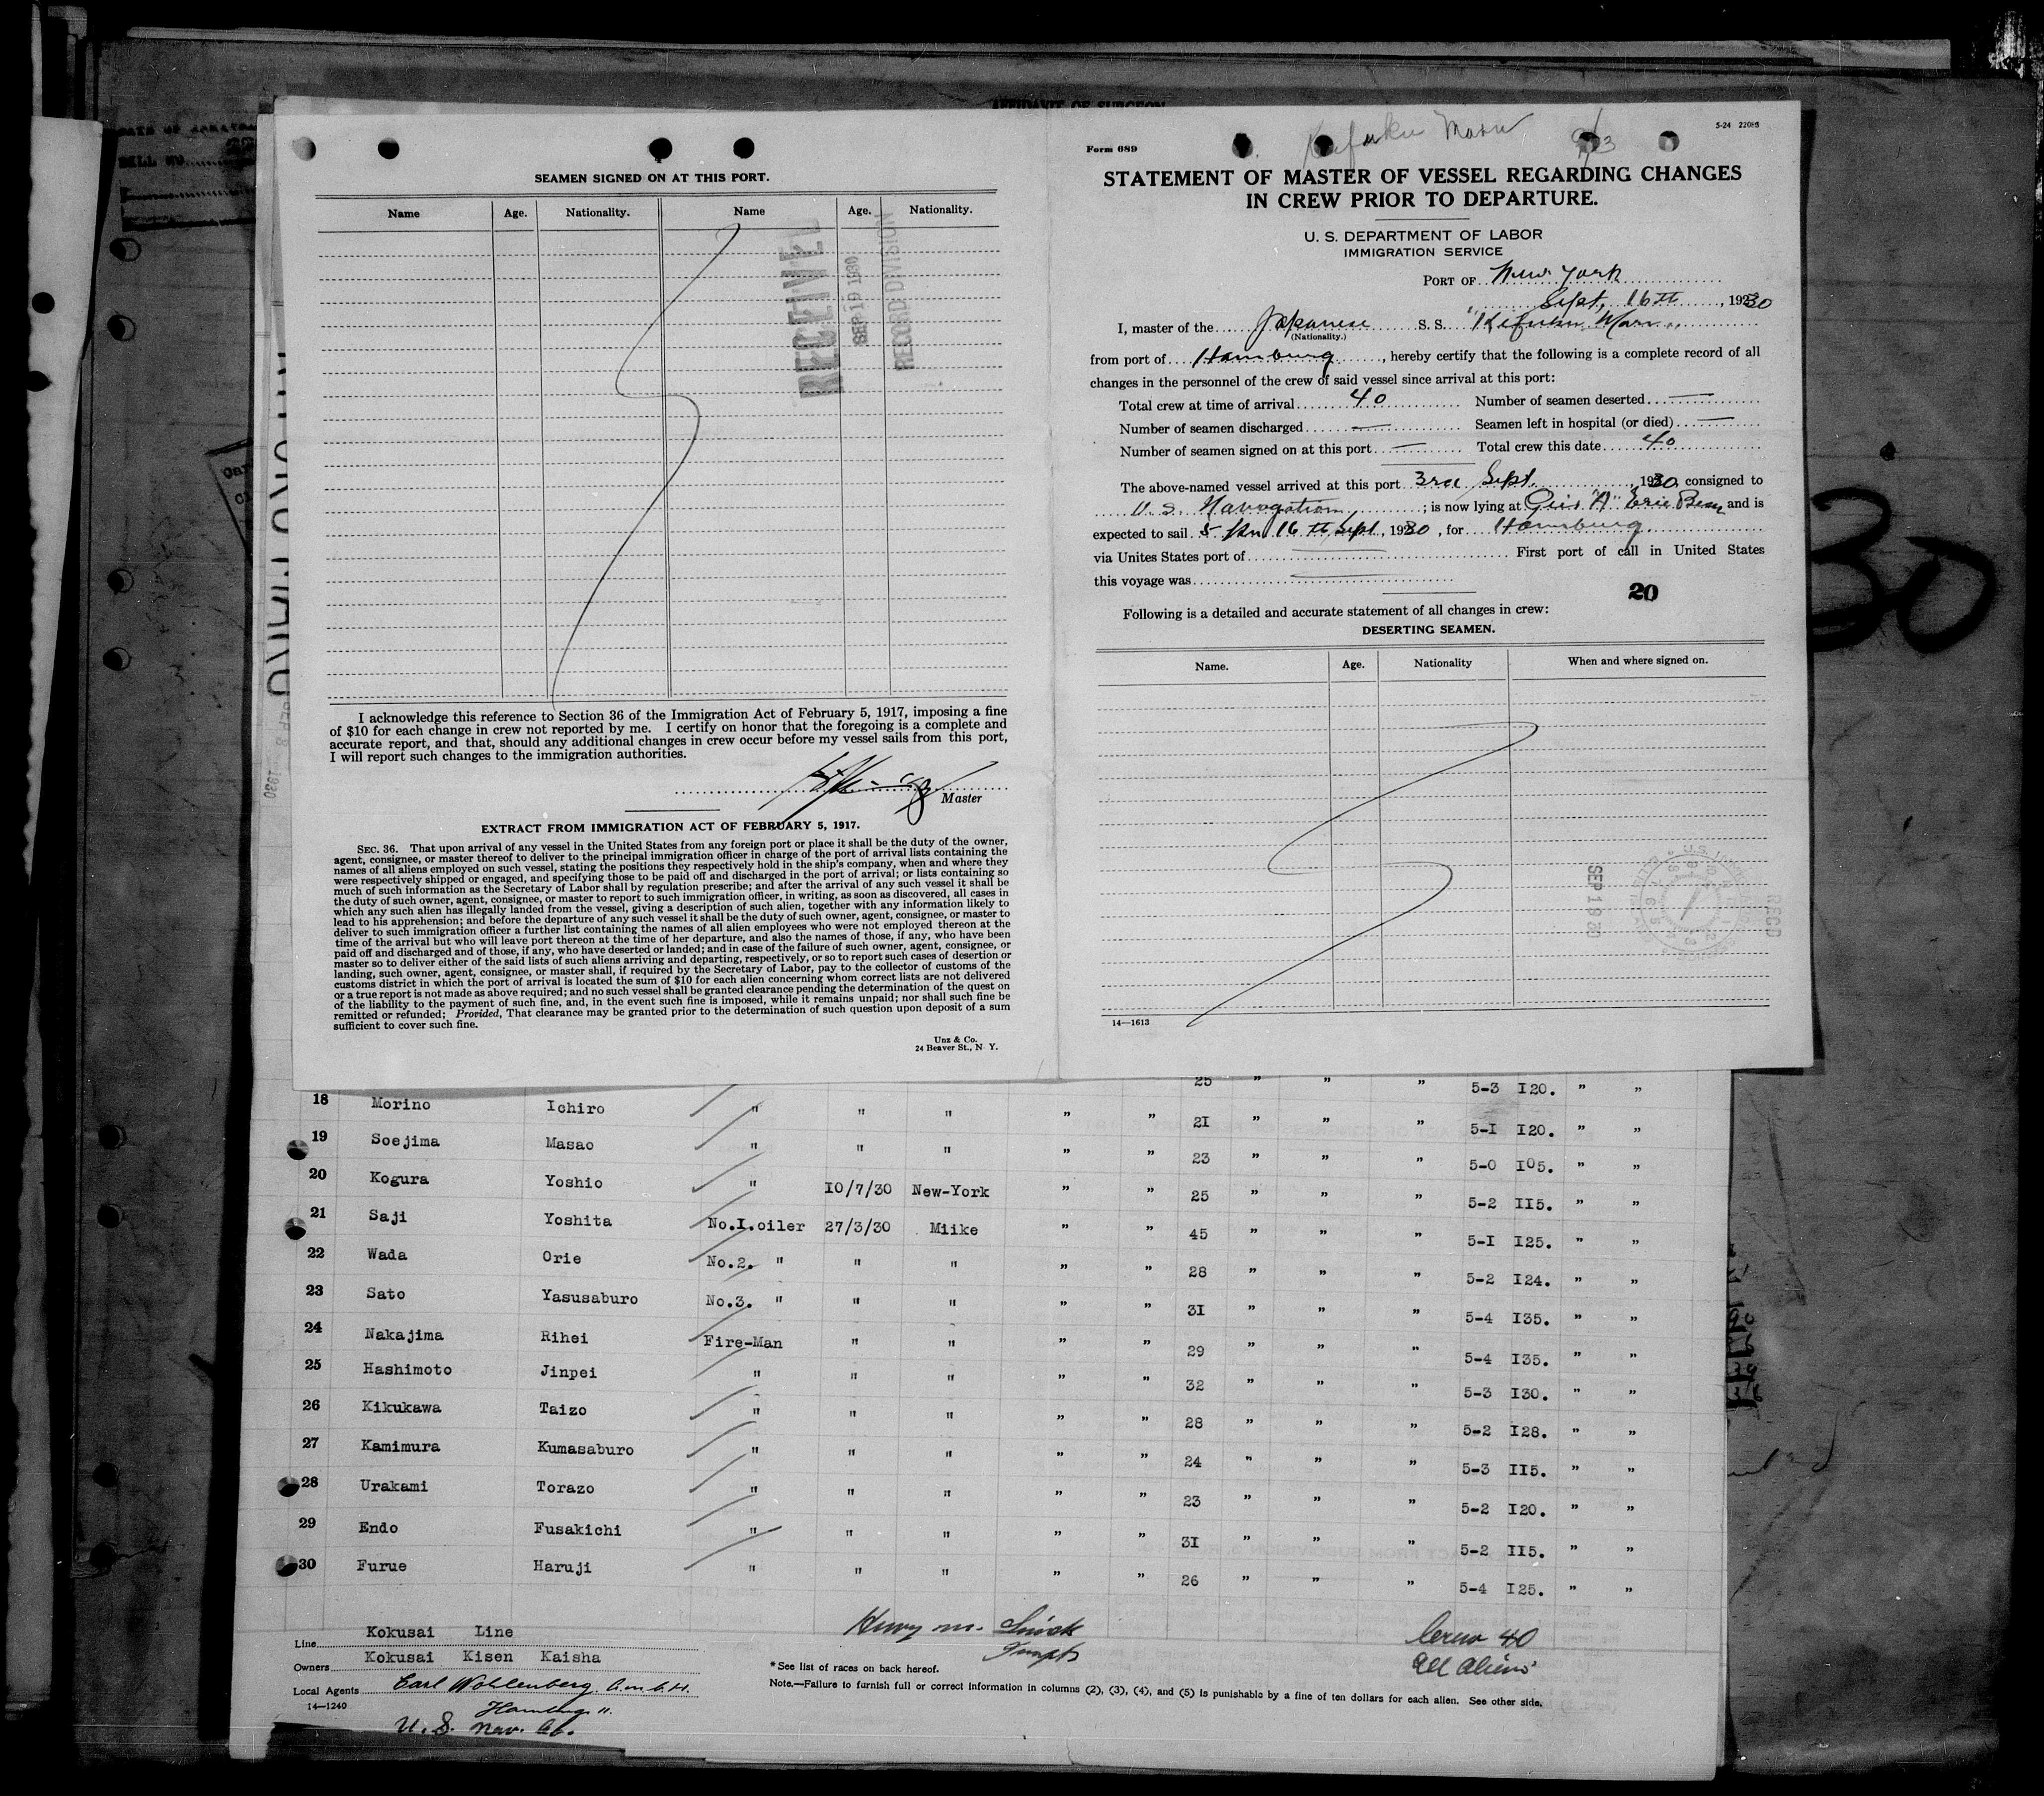 AFFIDAVIT OF SURGEON
BILL NO.
SEAMEN SIGNED ON AT THIS PORT.
Name Age. Nationality. Name Age. Nationality.
RECEIVED
SEP 19 1930
RECORD DIVISION
I acknowledge this reference to Section 36 of the Immigration Act of February 5, 1917, imposing a fine
of $10 for each change in crew not reported by me. I certify on honor that the foregoing is a complete and
accurate report, and that, should any additional changes in crew occur before my vessel sails from this port,
I will report such changes to the immigration authorities.
Master
EXTRACT FROM IMMIGRATION ACT OF FEBRUARY 5, 1917.
SEC. 36. That upon arrival of any vessel in the United States from any foreign port or place it shall be the duty of the owner,
agent, consignee, or master thereof to deliver to the principal immigration officer in charge of the port of arrival lists containing the
names of all aliens employed on such vessel, stating the positions they respectively hold in the ship's company, when and where they
were respectively shipped or engaged, and specifying those to be paid off and discharged in the port of arrival; or lists containing so
much of such information as the Secretary of Labor shall by regulation prescribe; and after the arrival of any such vessel it shall be
the duty of such owner, agent, consignee, or master to report to such immigration officer, in writing, as soon as discovered, all cases in
which any such alien has illegally landed from the vessel, giving a description of such alien, together with any information likely to
lead to his apprehension; and before the departure of any such vessel it shall be the duty of such owner, agent, consignee, or master to
deliver to such immigration officer a further list containing the names of all alien employees who were not employed thereon at the
time of the arrival but who will leave port thereon at the time of her departure, and also the names of those, if any, who have been
paid off and discharged and of those, if any, who have deserted or landed; and in case of the failure of such owner, agent, consignee, or
master so to deliver either of the said lists of such aliens arriving and departing, respectively, or so to report such cases of desertion or
landing, such owner, agent, consignee, or master shall, if required by the Secretary of Labor, pay to the collector of customs of the
customs district in which the port of arrival is located the sum of $10 for each alien concerning whom correct lists are not delivered
or a true report is not made as above required; and no such vessel shall be granted clearance pending the determination of the quest on
of the liability to the payment of such fine, and, in the event such fine is imposed, while it remains unpaid; nor shall such fine be
remitted or refunded; Provided, That clearance may be granted prior to the determination of such question upon deposit of a sum
sufficient to cover such fine.
Unz & Co.
24 Beaver St., N Y.
5-24 2208
Kifuku Maru 9/3
Form 689
STATEMENT OF MASTER OF VESSEL REGARDING CHANGES
IN CREW PRIOR TO DEPARTURE.
U. S. DEPARTMENT OF LABOR
IMMIGRATION SERVICE
PORT OF New York
Sept. 16th, 1930
I, master of the Japanese S. S. "Kifuku Maru"
(Nationality.)
from port of Hamburg, hereby certify that the following is a complete record of all
changes in the personnel of the crew of said vessel since arrival at this port:
Total crew at time of arrival 40 Number of seamen deserted —
Number of seamen discharged — Seamen left in hospital (or died) —
Number of seamen signed on at this port — Total crew this date 40
The above-named vessel arrived at this port 3rd Sept. 1930, consigned to
U. S. Navagation; is now lying at Pier "A" Erie Basin and is
expected to sail 5 pm 16th Sept, 1930, for Hamburg
via Unites States port of — First port of call in United States
this voyage was —
20
Following is a detailed and accurate statement of all changes in crew:
DESERTING SEAMEN.
Name. Age. Nationality When and where signed on.
REC'D
SEP 18 30
14—1613
30
25 " " " 5-3 I20. " "
18 Morino Ichiro " " " " " 2I " " " 5-I I20. " "
19 Soejima Masao " " " " " 23 " " " 5-0 I05. " "
20 Kogura Yoshio " I0/7/30 New-York " " 25 " " " 5-2 II5. " "
21 Saji Yoshita No.I.oiler 27/3/30 Miike " " 45 " " " 5-I I25. " "
22 Wada Orie No.2. " " " " " 28 " " " 5-2 I24. " "
23 Sato Yasusaburo No.3. " " " " " 3I " " " 5-4 I35. " "
24 Nakajima Rihei Fire-Man " " " " 29 " " " 5-4 I35. " "
25 Hashimoto Jinpei " " " " " 32 " " " 5-3 I30. " "
26 Kikukawa Taizo " " " " " 28 " " " 5-2 I28. " "
27 Kamimura Kumasaburo " " " " " 24 " " " 5-3 II5. " "
28 Urakami Torazo " " " " " 23 " " " 5-2 I20. " "
29 Endo Fusakichi " " " " " 3I " " " 5-2 II5. " "
30 Furue Haruji " " " " " 26 " " " 5-4 I25. " "
Line Kokusai Line
Owners Kokusai Kisen Kaisha
Local Agents Carl Wohlenberg. G.m.b.H.
14—1240
Hamburg 11.
U. S. Nav. Co.
Henry M.
Inspt
Crew 40
All Aliens
*See list of races on back hereof.
Note.—Failure to furnish full or correct information in columns (2), (3), (4), and (5) is punishable by a fine of ten dollars for each alien. See other side.